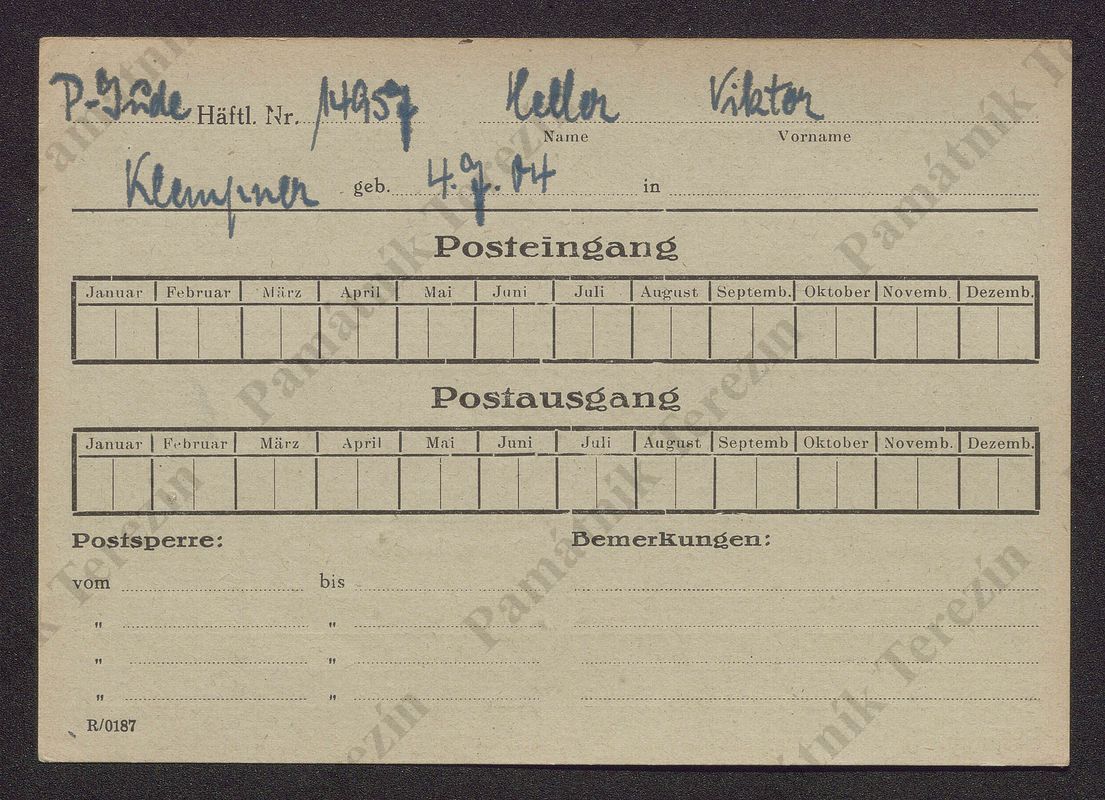 P-Jude Häftl. Nr. 14957 Heller Viktor
Name Vorname
Klempner geb. 4.7.04 in
Posteingang
Januar Februar März April Mai Juni Juli August Septemb. Oktober Novemb. Dezemb.
Postausgang
Januar Februar März April Mai Juni Juli August Septemb Oktober Novemb. Dezemb.
Postsperre: Bemerkungen:
vom bis
" "
" "
" "
R/0187
Památník Terezín